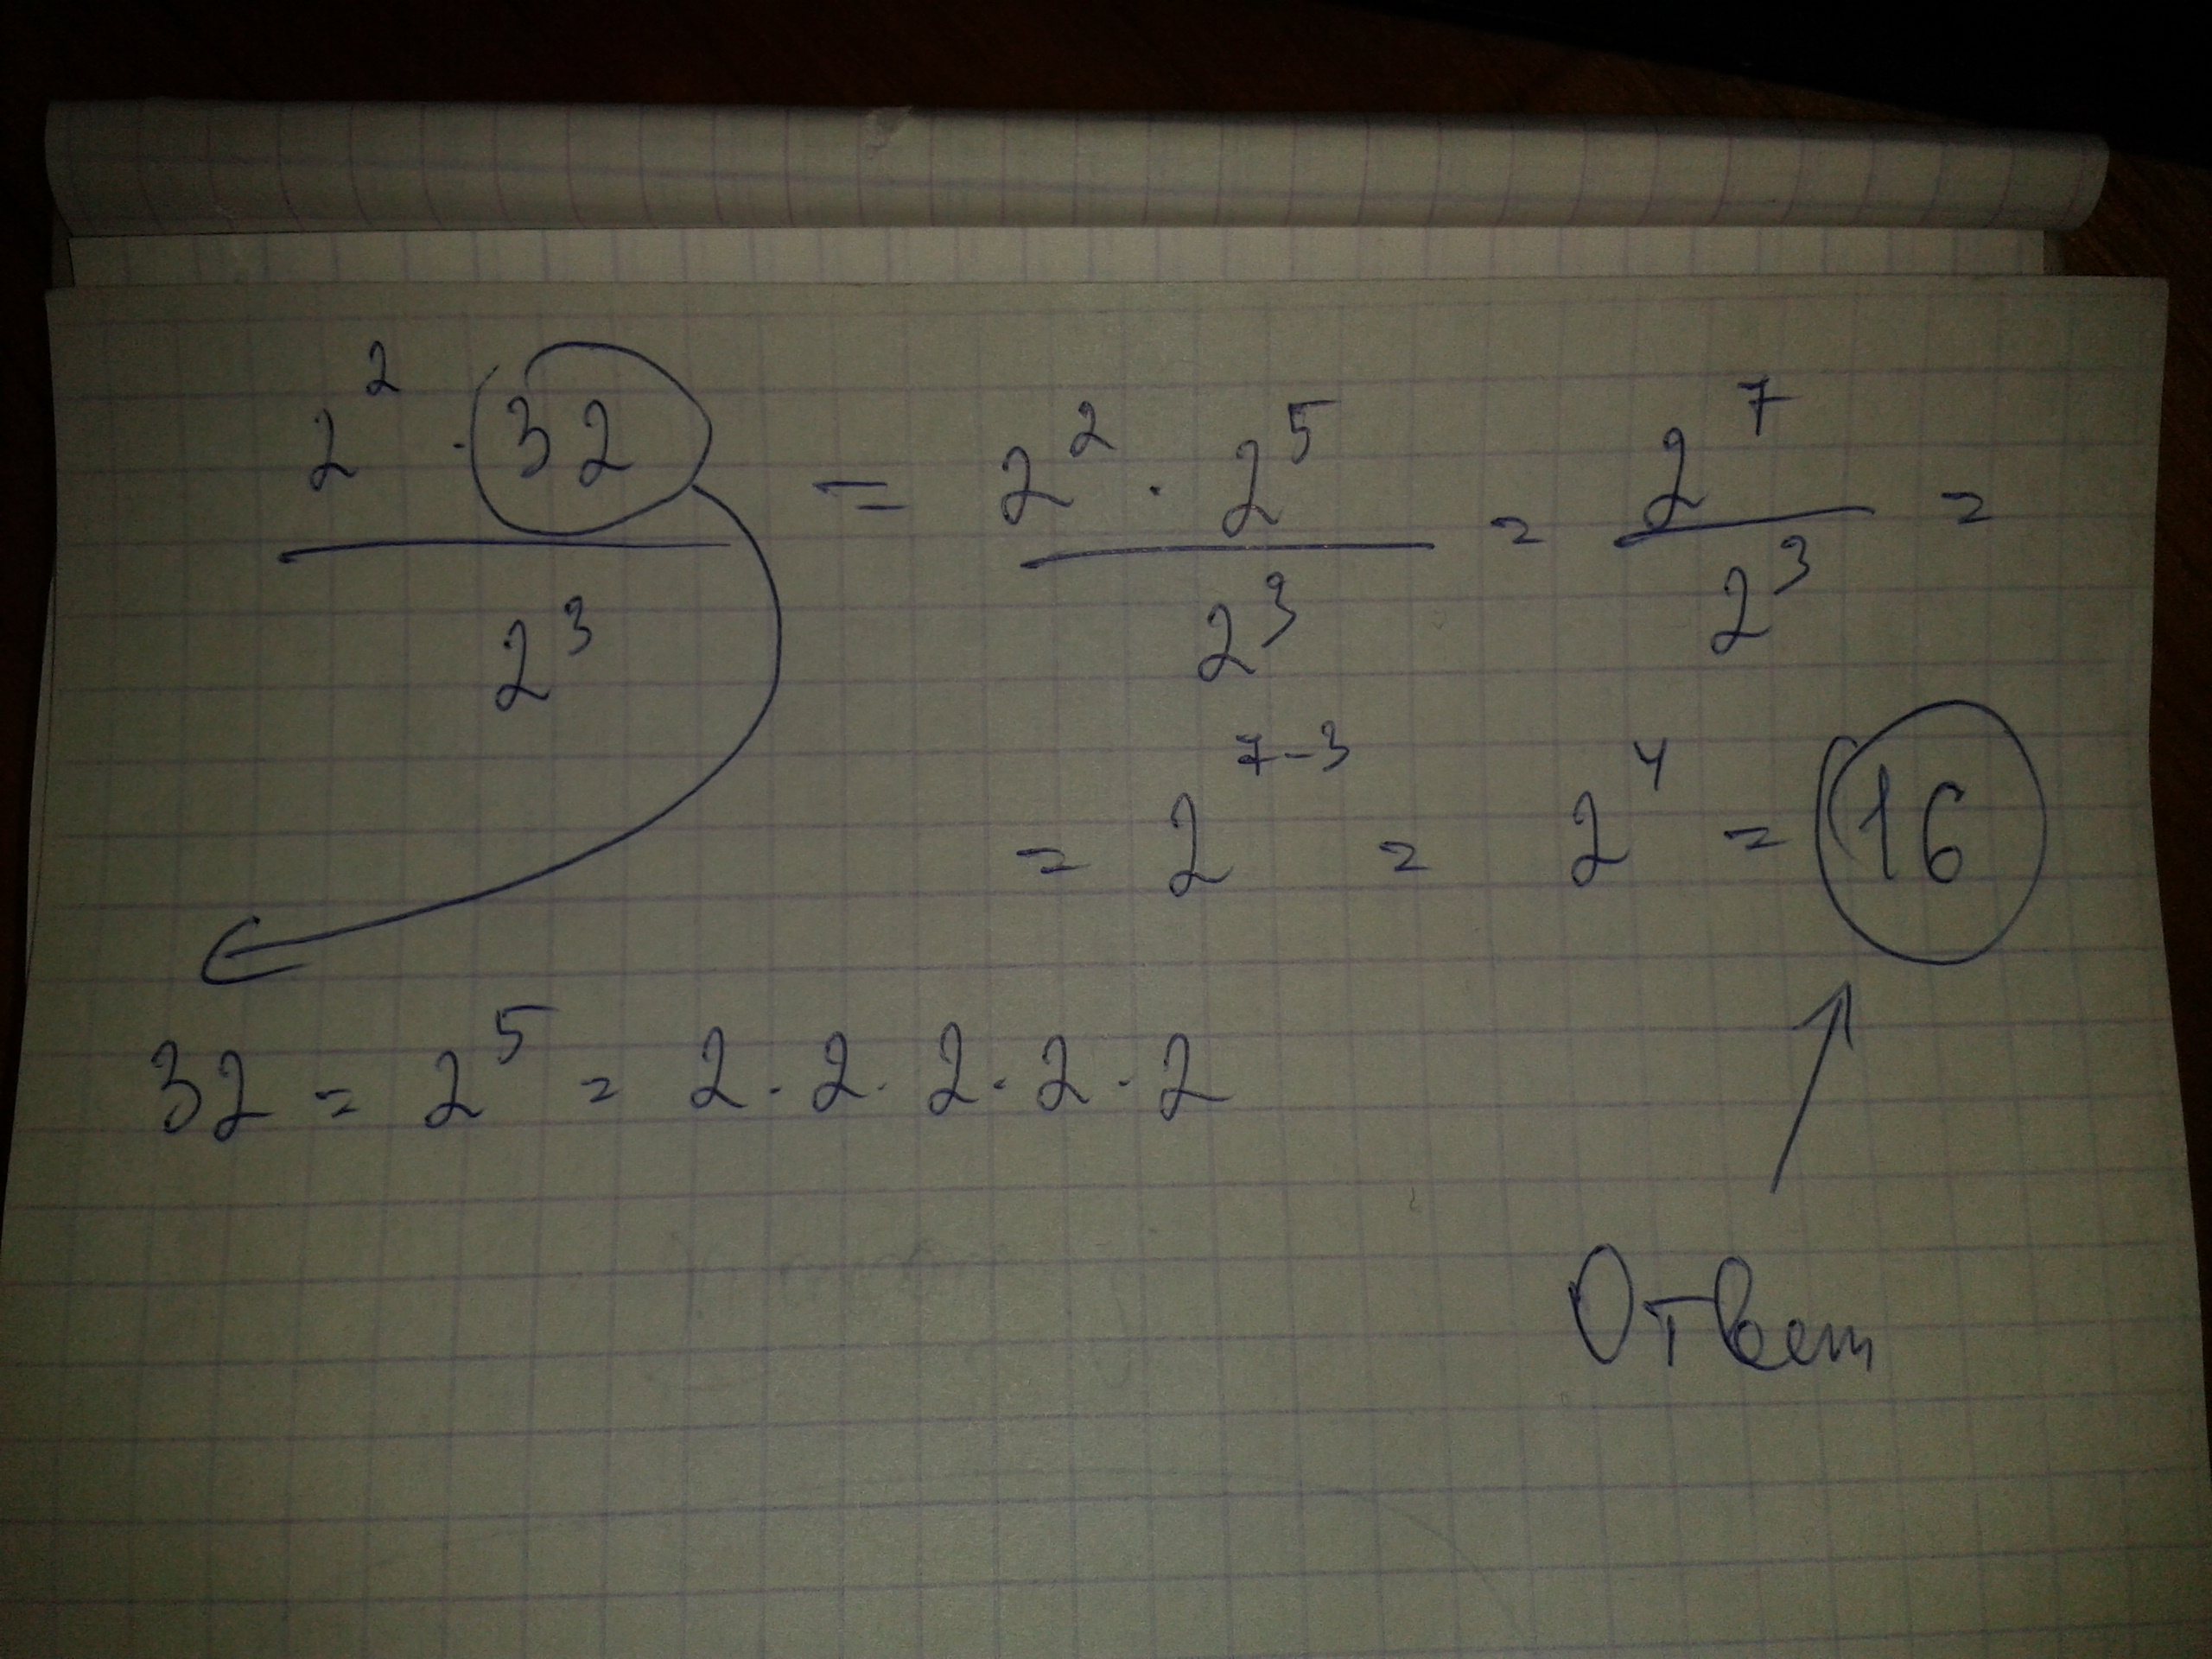 2² · 32 / 2³ = 2² · 2⁵ / 2³ = 2⁷ / 2³ =
= 2⁷⁻³ = 2⁴ = 16
32 = 2⁵ = 2 · 2 · 2 · 2 · 2
Ответ